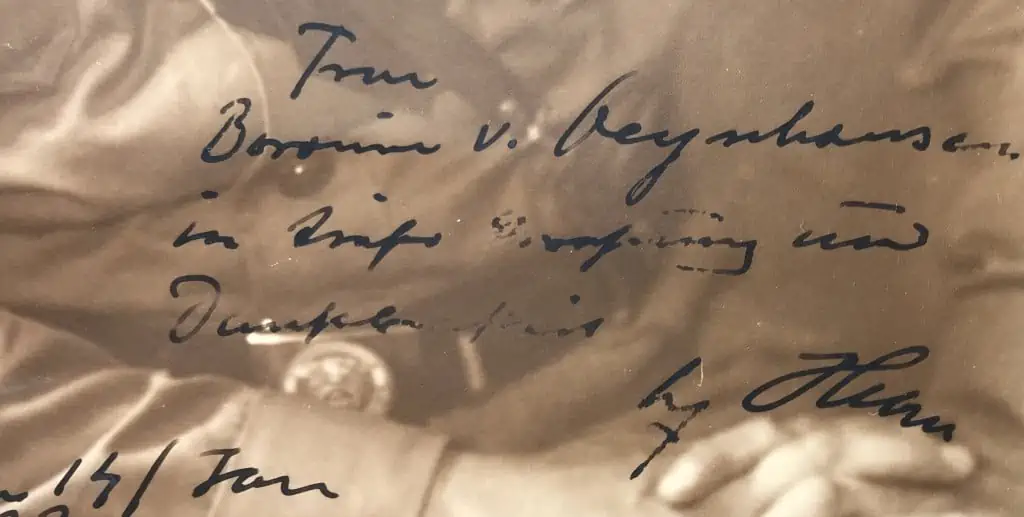 Frau
Baronin v. Oeynhausen
in tiefer Verehrung und
Dankbarkeit
14/ Jan